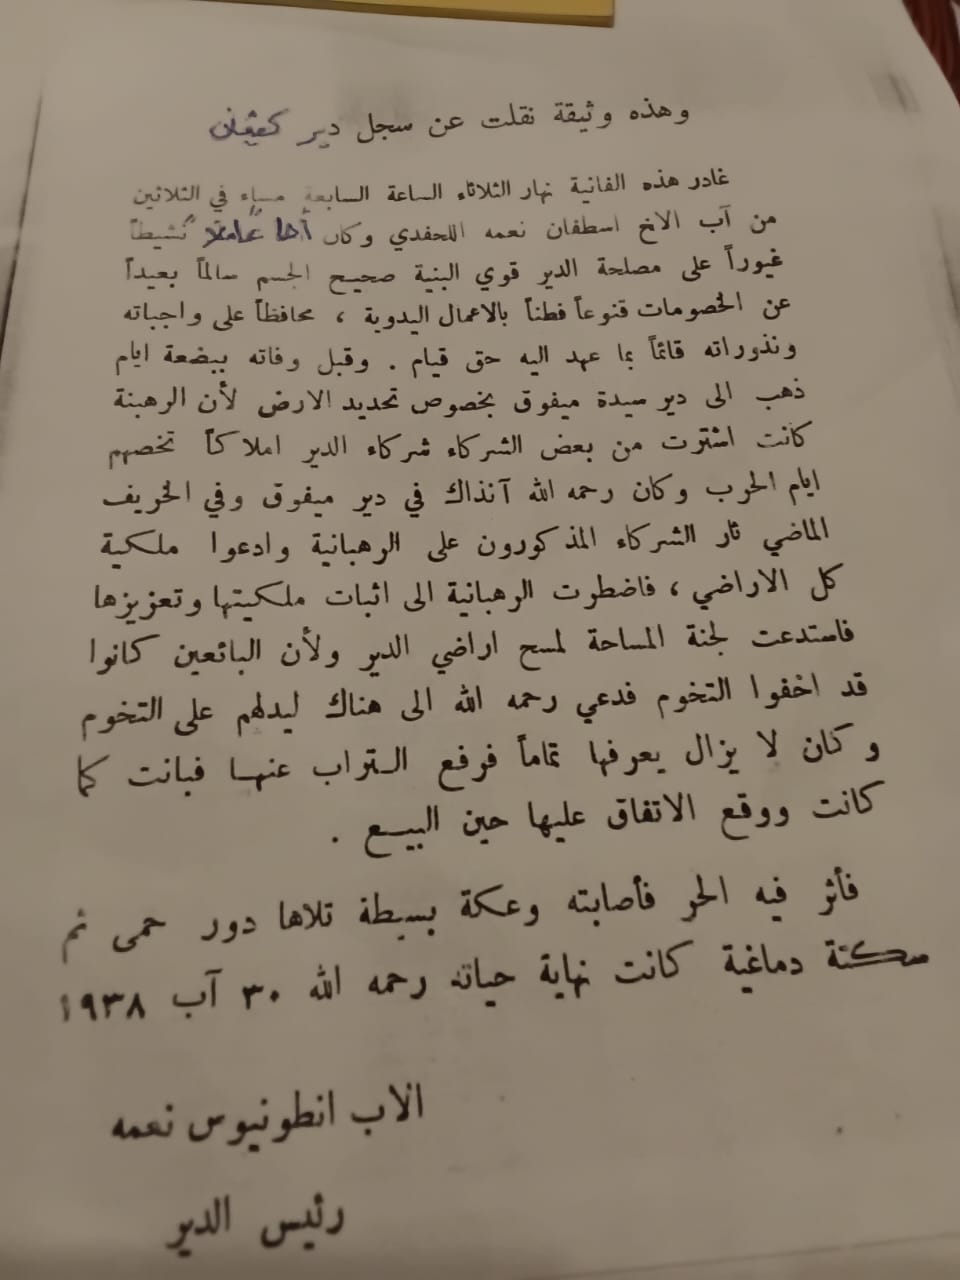 وهذه وثيقة نقلت عن سجل دير كفيفان
غادر هذه الفانية نهار الثلاثاء الساعة السابعة مساء في الثلاثين
من آب الاخ اسطفان نعمه اللحفدي وكان أخا عاملا نشيطاً
غيوراً على مصلحة الدير قوي البنية صحيح الجسم سالماً بعيداً
عن الخصومات قنوعاً فطناً بالاعمال اليدوية ، محافظاً على واجباته
ونذوراته قائماً بما عهد اليه حق قيام . وقبل وفاته ببضعة ايام
ذهب الى دير سيدة ميفوق بخصوص تحديد الارض لأن الرهبنة
كانت اشترت من بعض الشركاء شركاء الدير املاكاً تخصهم
ايام الحرب وكان رحمه الله آنذاك في دير ميفوق وفي الخريف
الماضي ثار الشركاء المذكورون على الرهبانية وادعوا ملكية
كل الاراضي ، فاضطرت الرهبانية الى اثبات ملكيتها وتعزيزها
فاستدعت لجنة المساحة لمسح اراضي الدير ولأن البائعين كانوا
قد اخفوا التخوم فدعي رحمه الله الى هناك ليدلهم على التخوم
وكان لا يزال يعرفها تماماً فرفع التراب عنها فبانت كما
كانت ووقع الاتفاق عليها حين البيع .
فأثر فيه الحر فأصابته وعكة بسيطة تلاها دور حمى ثم
سكتة دماغية كانت نهاية حياته رحمه الله ٣٠ آب ١٩٣٨
الاب انطونيوس نعمه
رئيس الدير